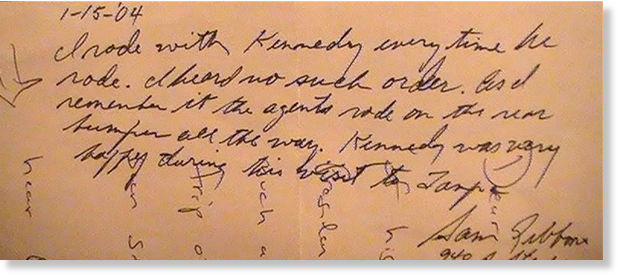 1-15-'04
I rode with Kennedy every time he
rode. I heard no such order. As I
remember it the agents rode on the rear
bumper all the way. Kennedy was very
happy during his visit to Tampa.
Sam Gibbons
940
hear
trip
such a